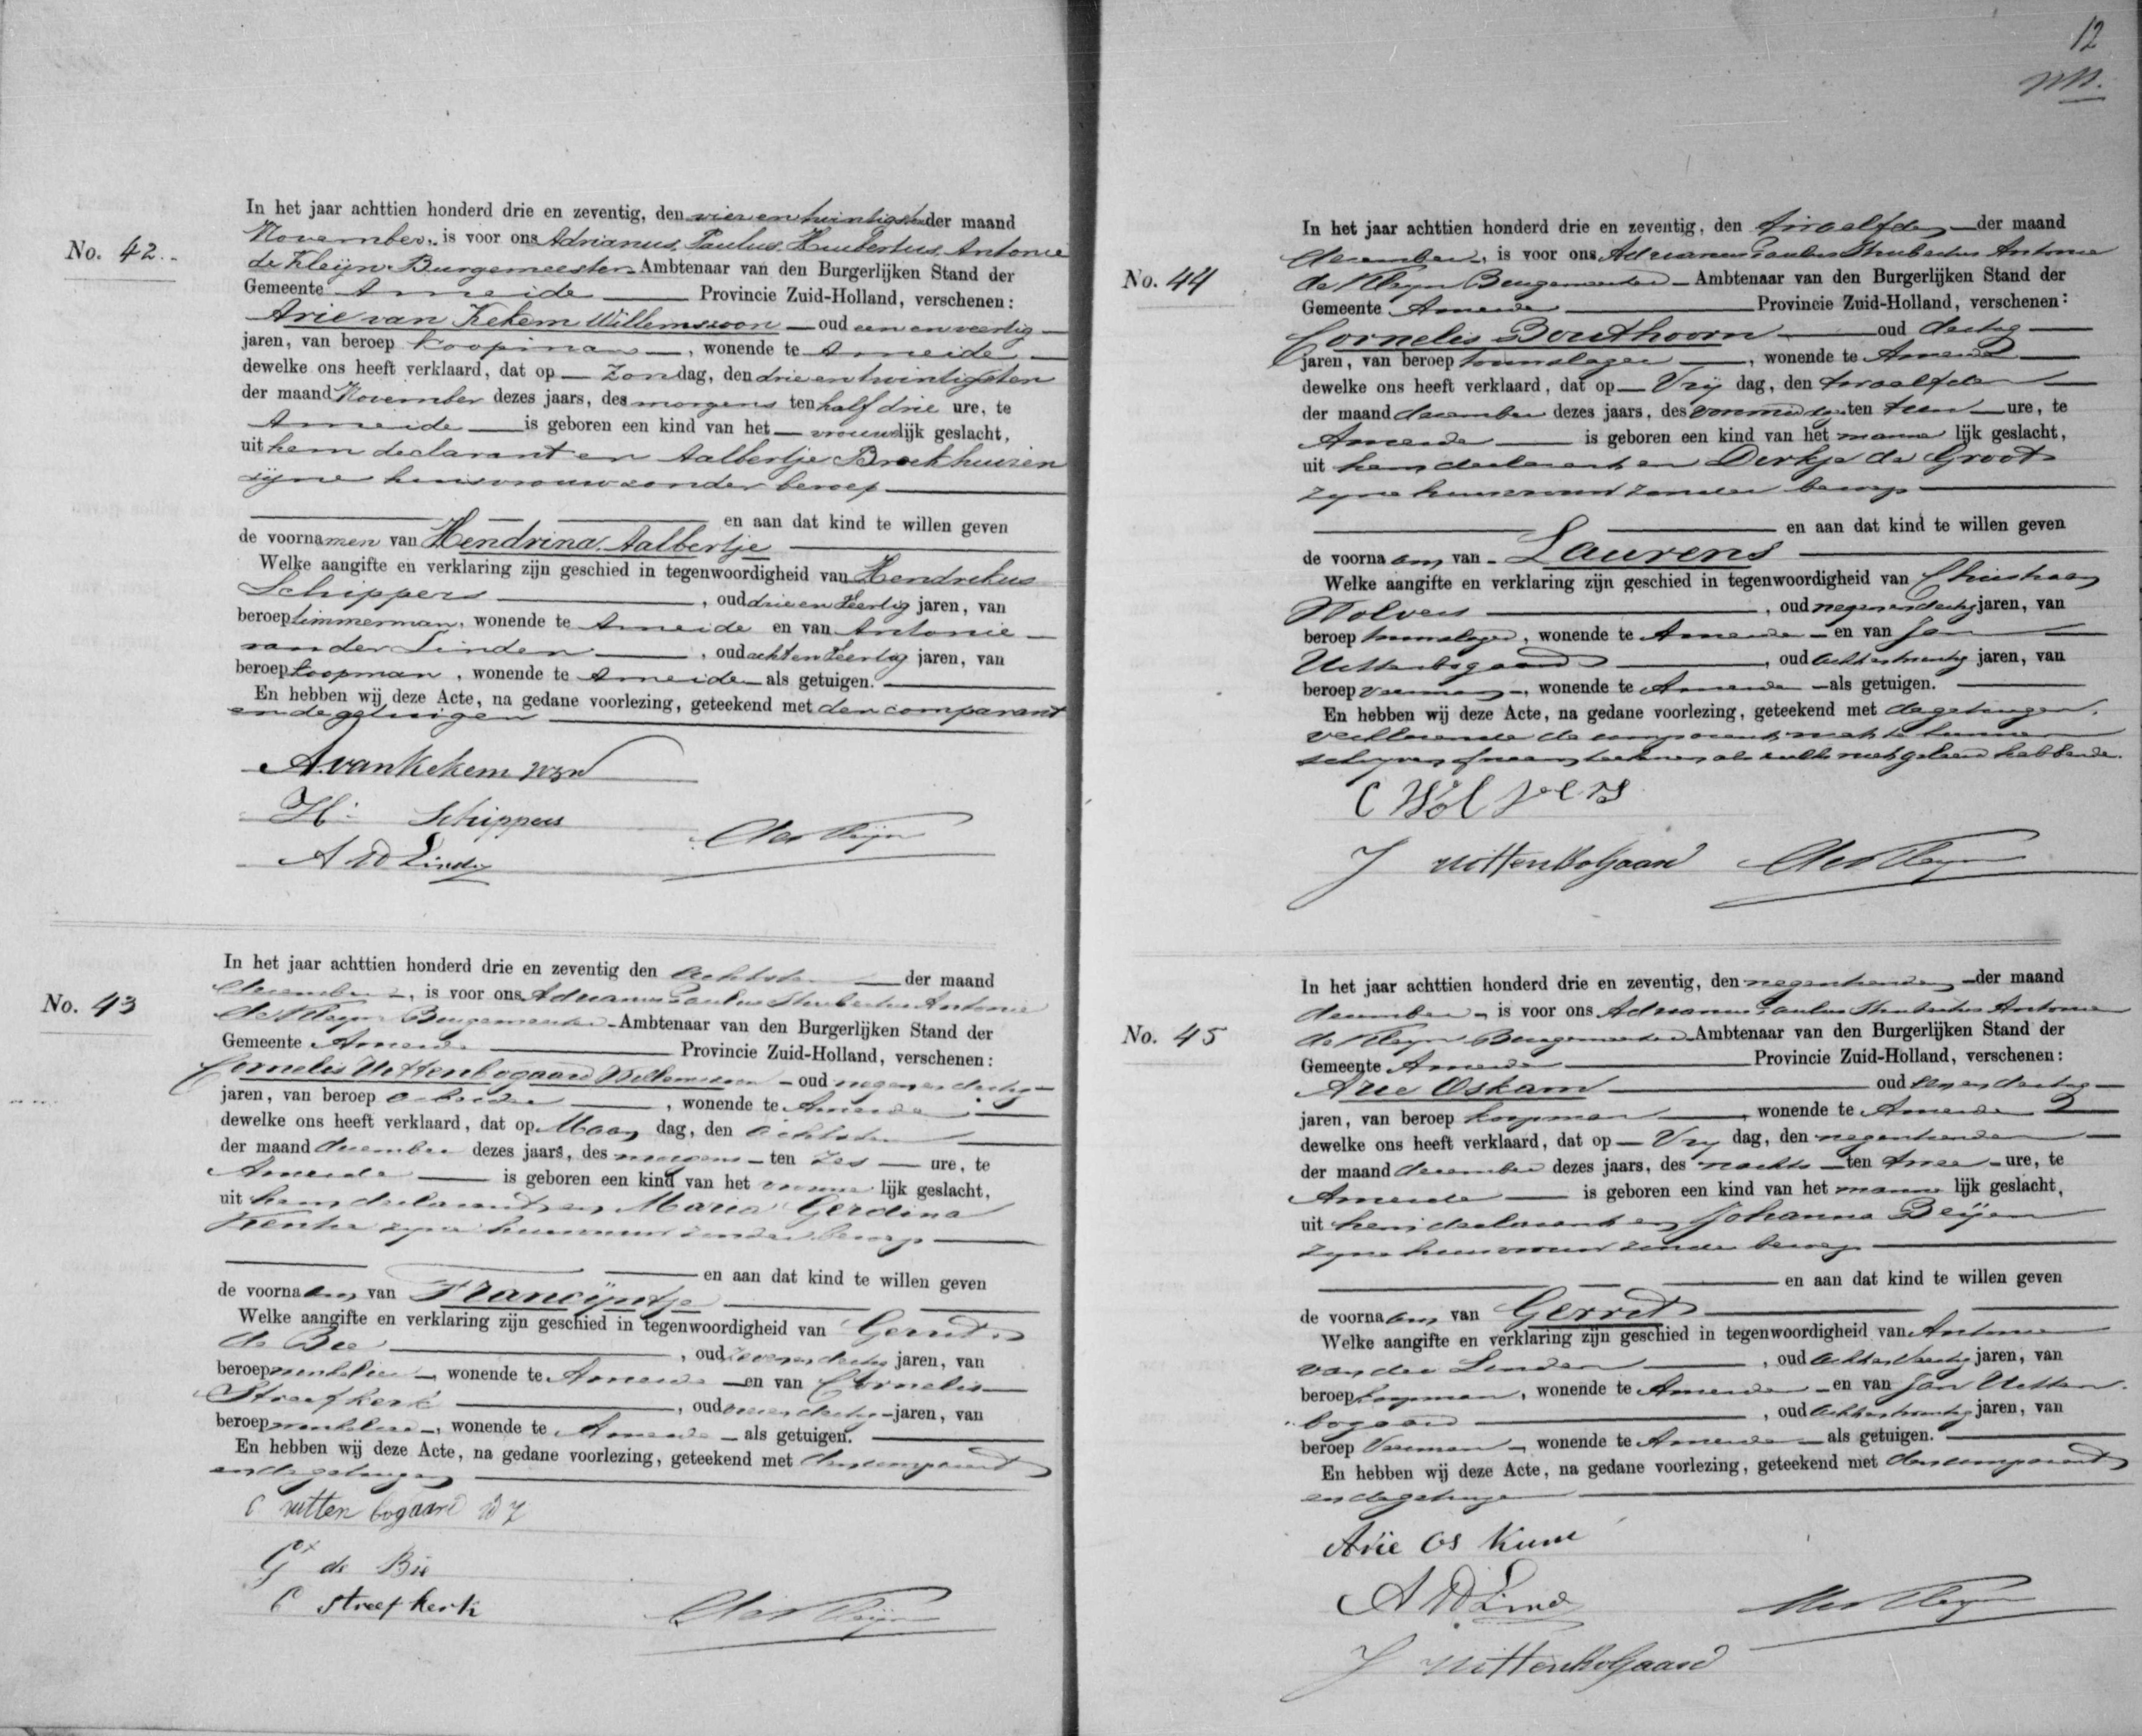 No. 42.
In het jaar achttien honderd drie en zeventig, den vier en twintigsten der maand
November, is voor ons Adrianus Paulus Hubertus Antonie
de Kleijn Burgemeester Ambtenaar van den Burgerlijken Stand der
Gemeente Ameide Provincie Zuid-Holland, verschenen:
Arie van Kekem Willemszoon oud een en veertig
jaren, van beroep koopman, wonende te Ameide
dewelke ons heeft verklaard, dat op Zondag, den drie en twintigsten
der maand November dezes jaars, des morgens ten half drie ure, te
Ameide is geboren een kind van het vrouwlijk geslacht,
uit hem declarant en Aalbertje Broekhuizen
zijne huisvrouw zonder beroep
en aan dat kind te willen geven
de voornamen van Hendrina Aalbertje
Welke aangifte en verklaring zijn geschied in tegenwoordigheid van Hendrikus
Schippers, oud drie en veertig jaren, van
beroep timmerman, wonende te Ameide en van Antonie
van der Linden, oud acht en veertig jaren, van
beroep koopman, wonende te Ameide als getuigen.
En hebben wij deze Acte, na gedane voorlezing, geteekend met den comparant
en de getuigen
A van Kekem wzn
H. Schippers
A vd Linden
de Kleijn
No. 43
In het jaar achttien honderd drie en zeventig den achtsten der maand
december, is voor ons Adrianus Paulus Hubertus Antonie
de Kleijn Burgemeester Ambtenaar van den Burgerlijken Stand der
Gemeente Ameide Provincie Zuid-Holland, verschenen:
Cornelis Uittenbogaard Willemszoon oud negenendertig
jaren, van beroep arbeider, wonende te Ameide
dewelke ons heeft verklaard, dat op Maandag, den achtsten
der maand december dezes jaars, des morgens ten zes ure, te
Ameide is geboren een kind van het vrouwelijk geslacht,
uit hem declarant en Maria Gerdina
zijne huisvrouw zonder beroep
en aan dat kind te willen geven
de voornaam van Francijntje
Welke aangifte en verklaring zijn geschied in tegenwoordigheid van Gerrit
de Bie, oud zevenendertig jaren, van
beroep winkelier, wonende te Ameide en van Cornelis
Streefkerk, oud jaren, van
beroep winkelier, wonende te Ameide als getuigen.
En hebben wij deze Acte, na gedane voorlezing, geteekend met den comparant
en de getuigen
C uittenbogaard wz
Gt de Bie
C streefkerk
de Kleijn
12
No. 44
In het jaar achttien honderd drie en zeventig, den twaalfden der maand
december, is voor ons Adrianus Paulus Hubertus Antonie
de Kleijn Burgemeester Ambtenaar van den Burgerlijken Stand der
Gemeente Ameide Provincie Zuid-Holland, verschenen:
Cornelis Bouthoorn oud dertig
jaren, van beroep touwslager, wonende te Ameide
dewelke ons heeft verklaard, dat op Vrijdag, den twaalfden
der maand december dezes jaars, des voormiddags ten tien ure, te
Ameide is geboren een kind van het mannelijk geslacht,
uit hem declarant en Dirkje de Groot
zijne huisvrouw zonder beroep
en aan dat kind te willen geven
de voornaam van Laurens
Welke aangifte en verklaring zijn geschied in tegenwoordigheid van Christiaan
Wolvers, oud negenendertig jaren, van
beroep touwslager, wonende te Ameide en van Jan
Uittenbogaard, oud achtentwintig jaren, van
beroep veerman, wonende te Ameide als getuigen.
En hebben wij deze Acte, na gedane voorlezing, geteekend met de getuigen,
verklarende de comparant niet te kunnen
schrijven of naam teekenen als zulks niet geleerd hebbende.
C Wolvers
J uittenboGaard
de Kleijn
No. 45
In het jaar achttien honderd drie en zeventig, den negentienden der maand
december, is voor ons Adrianus Paulus Hubertus Antonie
de Kleijn Burgemeester Ambtenaar van den Burgerlijken Stand der
Gemeente Ameide Provincie Zuid-Holland, verschenen:
Arie Oskam oud eenendertig
jaren, van beroep koopman, wonende te Ameide
dewelke ons heeft verklaard, dat op Vrijdag, den negentienden
der maand december dezes jaars, des nachts ten twee ure, te
Ameide is geboren een kind van het mannelijk geslacht,
uit hem declarant en Johanna Beijen
zijne huisvrouw zonder beroep
en aan dat kind te willen geven
de voornaam van Gerrit
Welke aangifte en verklaring zijn geschied in tegenwoordigheid van Antonie
van der Linden, oud achtenveertig jaren, van
beroep koopman, wonende te Ameide en van Jan Uitten
bogaard, oud achtentwintig jaren, van
beroep Veerman, wonende te Ameide als getuigen.
En hebben wij deze Acte, na gedane voorlezing, geteekend met den comparant
en de getuigen
Arie Os Kam
A vd Linden
de Kleijn
J uittenboGaard